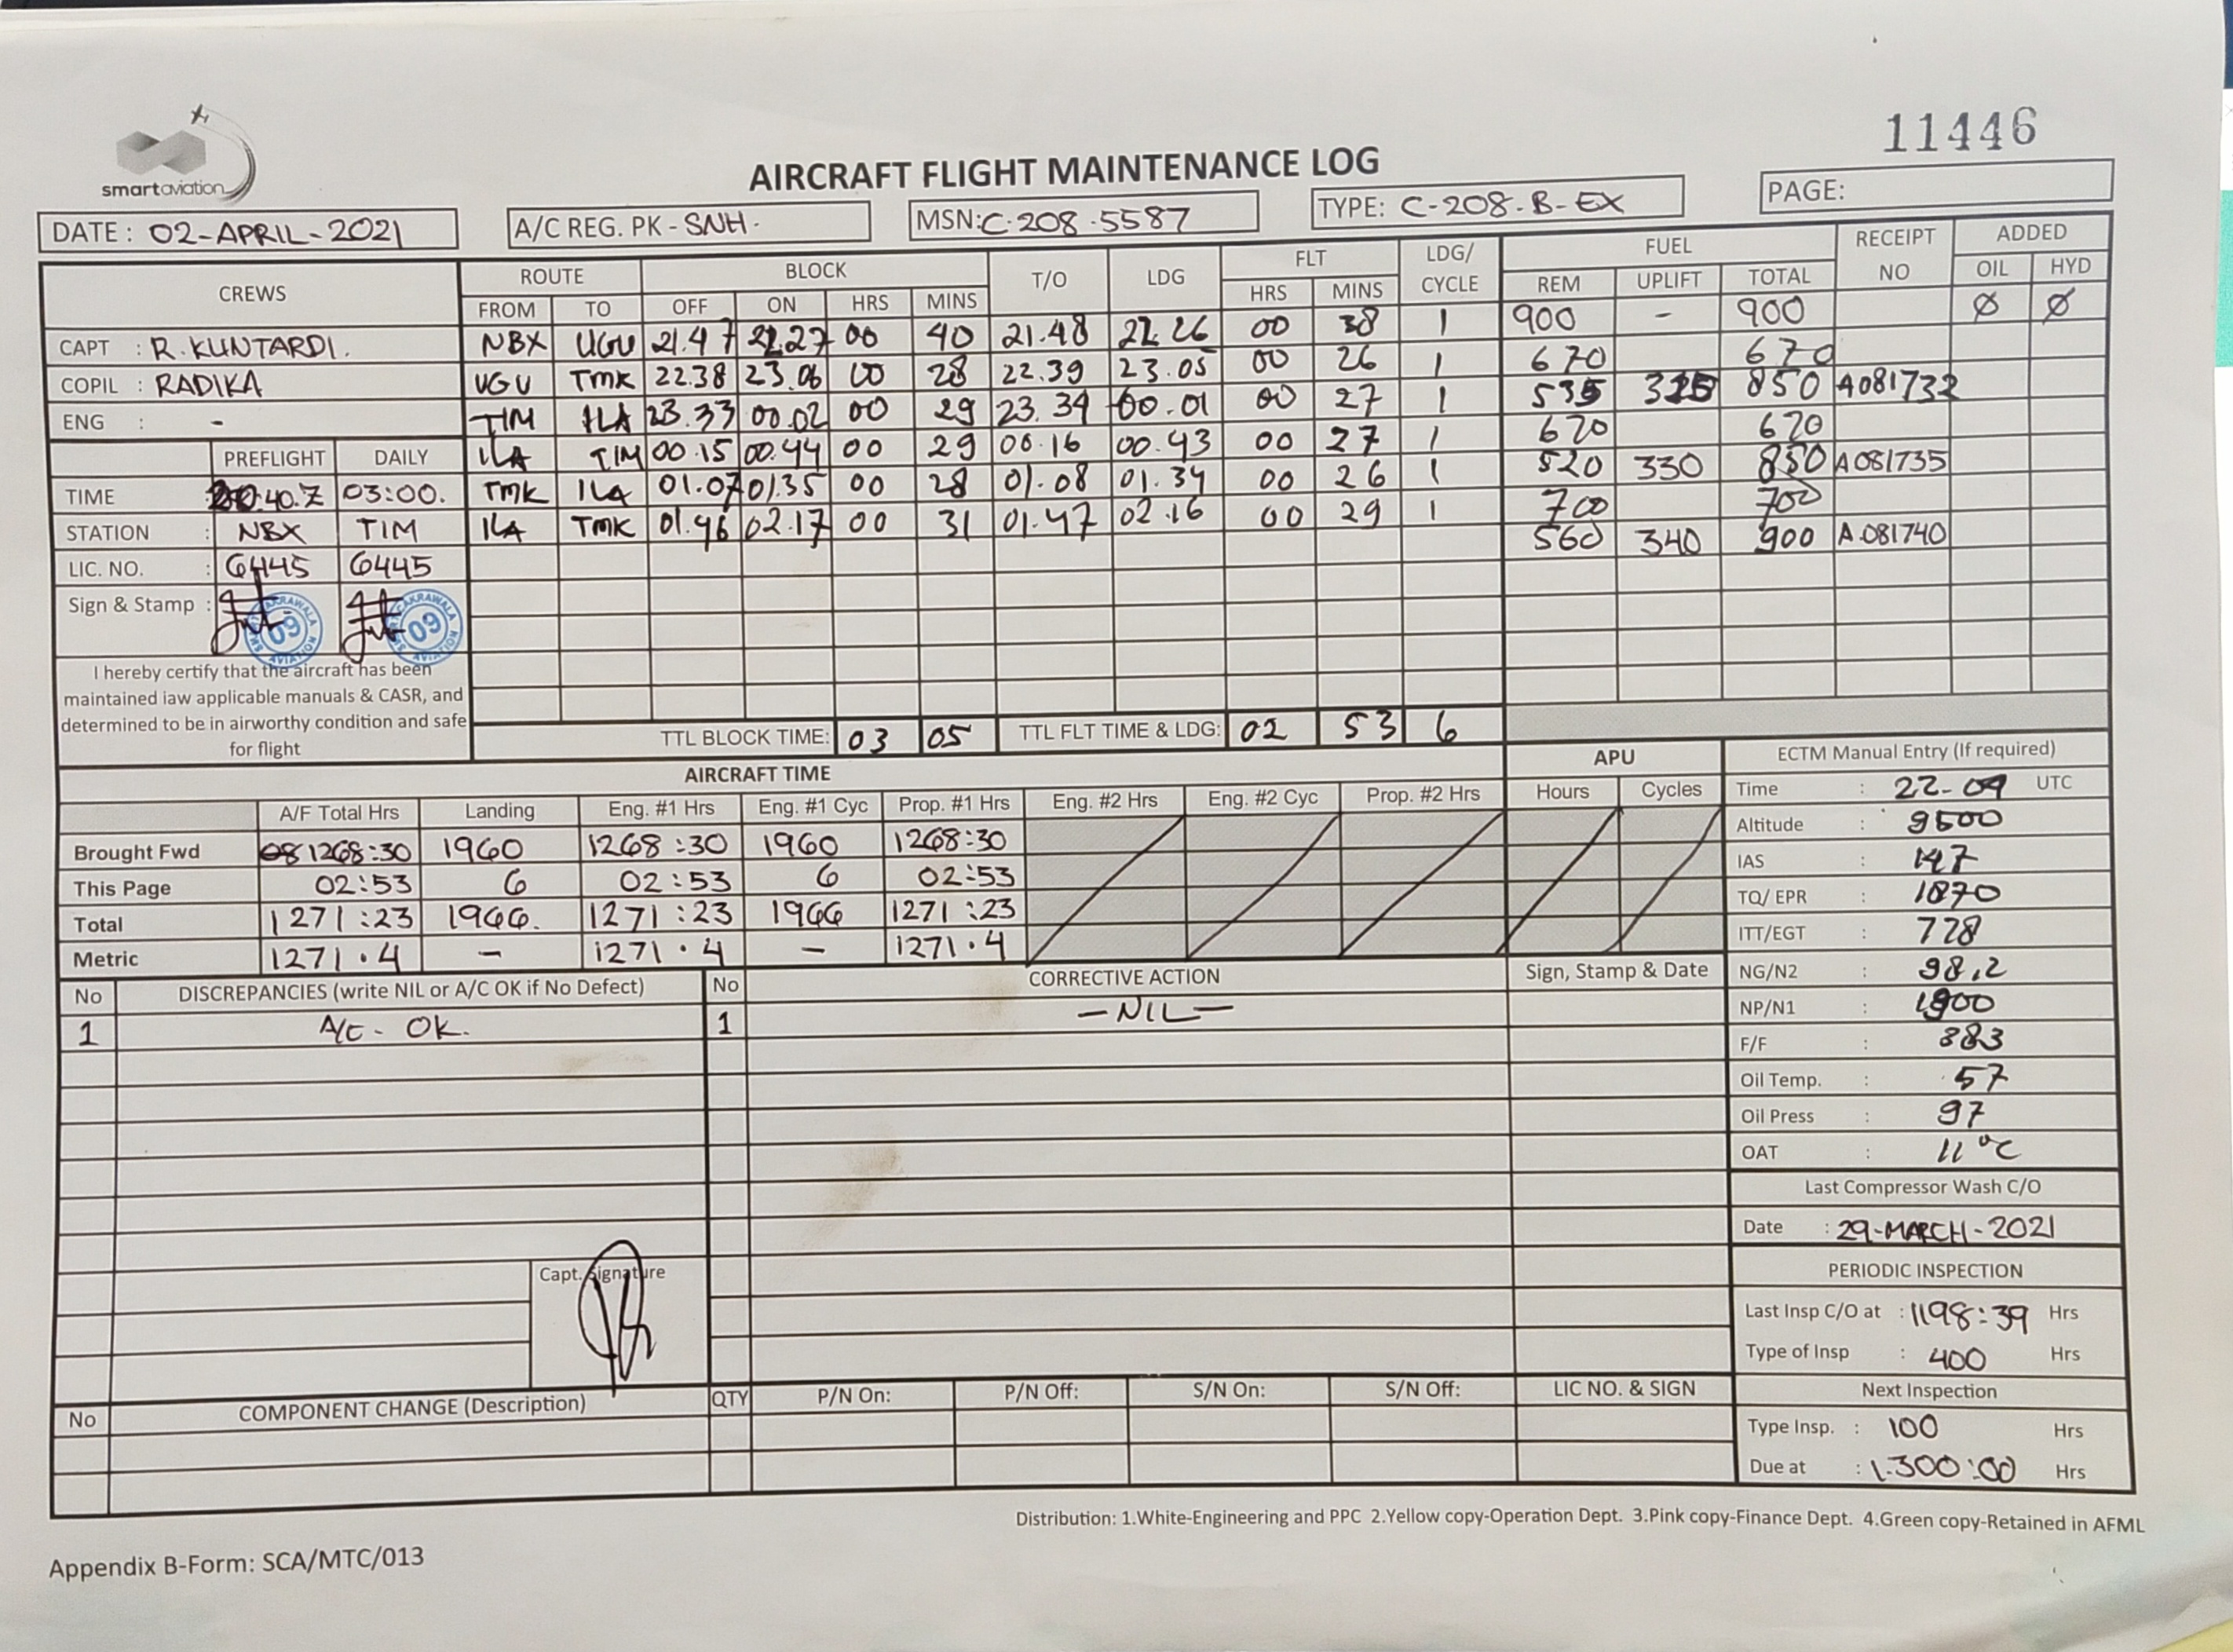 11446
smartaviation
AIRCRAFT FLIGHT MAINTENANCE LOG
DATE : 02-APRIL-2021 A/C REG. PK - SNH. MSN: C.208.5587 TYPE: C-208.B-EX PAGE:
CREWS ROUTE BLOCK T/O LDG FLT LDG/ CYCLE FUEL RECEIPT NO ADDED
FROM TO OFF ON HRS MINS HRS MINS REM UPLIFT TOTAL OIL HYD
CAPT : R. KUNTARDI. NBX UGU 21.47 22.27 00 40 21.48 22.26 00 38 1 900 - 900 Ø Ø
COPIL : RADIKA UGU TMK 22.38 23.06 00 28 22.39 23.05 00 26 1 670 670
ENG : - TIM ILA 23.33 00.02 00 29 23.34 00.01 00 27 1 535 850 A081732
PREFLIGHT DAILY ILA TIM 00.15 00.44 00 29 00.16 00.43 00 27 1 670 670
TIME : 40.Z 03:00. TMK ILA 01.07 01.35 00 28 01.08 01.34 00 26 1 520 330 850 A081735
STATION : NBX TIM ILA TMK 01.46 02.17 00 31 01.47 02.16 00 29 1 700 700
LIC. NO. : 6445 6445 560 340 900 A.081740
Sign & Stamp : 09 09
I hereby certify that the aircraft has been
maintained iaw applicable manuals & CASR, and
determined to be in airworthy condition and safe
for flight
TTL BLOCK TIME: 03 05 TTL FLT TIME & LDG: 02 53 6
AIRCRAFT TIME APU ECTM Manual Entry (If required)
A/F Total Hrs Landing Eng. #1 Hrs Eng. #1 Cyc Prop. #1 Hrs Eng. #2 Hrs Eng. #2 Cyc Prop. #2 Hrs Hours Cycles Time : 22-09 UTC
Brought Fwd 1268:30 1960 1268:30 1960 1268:30 Altitude : 9500
This Page 02:53 6 02:53 6 02:53 IAS : 147
Total 1271:23 1966. 1271:23 1966 1271:23 TQ/ EPR : 1870
Metric 1271.4 - 1271.4 - 1271.4 ITT/EGT : 728
No DISCREPANCIES (write NIL or A/C OK if No Defect) No CORRECTIVE ACTION Sign, Stamp & Date NG/N2 : 98.2
1 A/C - OK. 1 - NIL - NP/N1 : 1900
F/F : 383
Oil Temp. : 57
Oil Press : 97
OAT : 11 °C
Last Compressor Wash C/O
Date : 29-MARCH-2021
Capt. Signature
PERIODIC INSPECTION
Last Insp C/O at : 1198:39 Hrs
Type of Insp : 400 Hrs
No COMPONENT CHANGE (Description) QTY P/N On: P/N Off: S/N On: S/N Off: LIC NO. & SIGN Next Inspection
Type Insp. : 100 Hrs
Due at : 1.300:00 Hrs
Distribution: 1.White-Engineering and PPC 2.Yellow copy-Operation Dept. 3.Pink copy-Finance Dept. 4.Green copy-Retained in AFML
Appendix B-Form: SCA/MTC/013